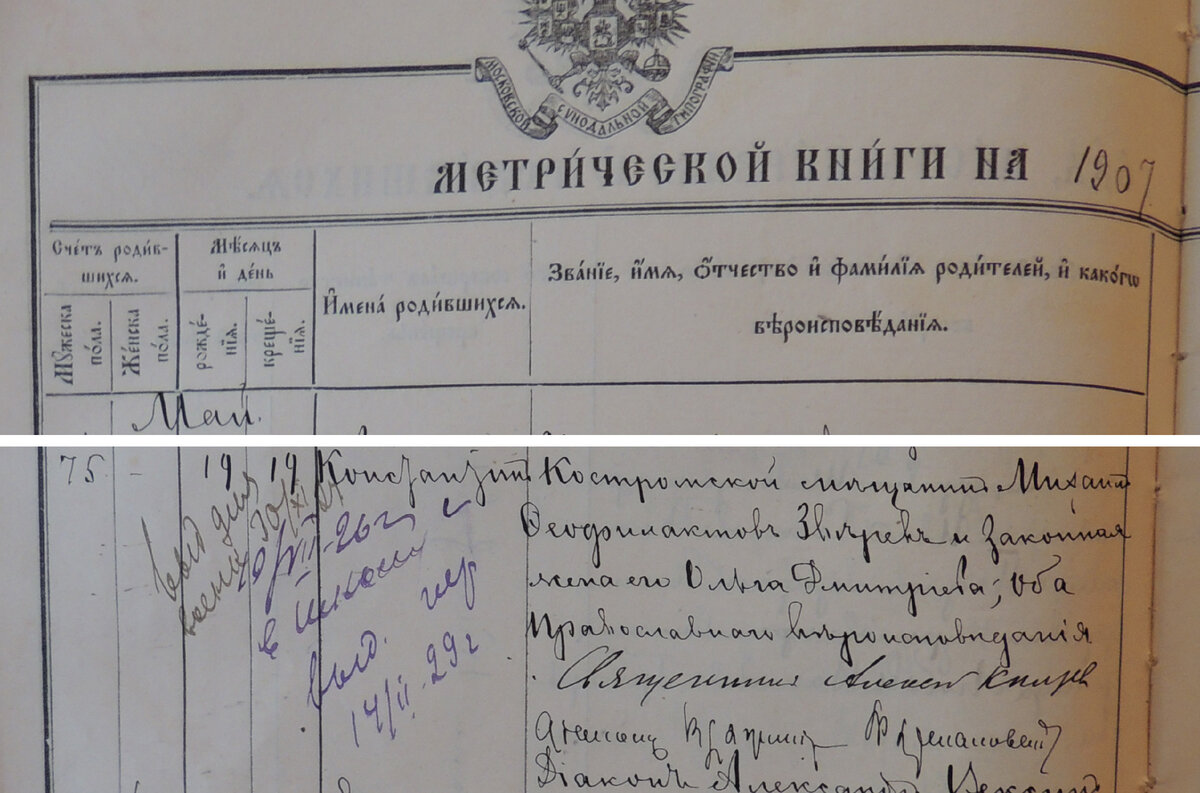 МОСКОВСКОЙ СѴНОДАЛЬНОЙ ТИПОГРАФІИ
МЕТРИ́ЧЕСКОЙ КНИ́ГИ НА 1907
Сче́тъ роди́в-
шихсѧ.
Мѣ́сѧцъ
и҆ де́нь
И҆мена̀ роди́вшихсѧ.
Зва́нїе, и҆́мѧ, ѻ҆́тчество и҆ фами́лїѧ роди́телей, и҆ како́гѡ
вѣроисповѣ́данїѧ.
Мꙋ́жеска
по́ла.
Же́нска
по́ла.
рожде́-
нїѧ.
креще́-
нїѧ.
Май.
75 - 19 19 Константинъ Костромской мѣщанинъ Михаилъ
Ѳеофилактовъ Звѣревъ и законная
жена его Ольга Дмитріева; оба
Православнаго вѣроисповѣданія
Священникъ Алексей
Діаконъ Александръ
выд для
выд.
14/II-29 г